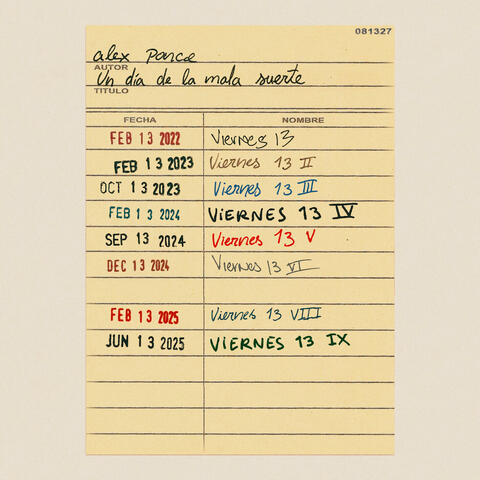 081327
alex ponce
AUTOR
Un día de la mala suerte
TITULO
FECHA NOMBRE
FEB 13 2022 Viernes 13
FEB 13 2023 Viernes 13 II
OCT 13 2023 Viernes 13 III
FEB 13 2024 VIERNES 13 IV
SEP 13 2024 Viernes 13 V
DEC 13 2024 Viernes 13 VI
FEB 13 2025 Viernes 13 VIII
JUN 13 2025 VIERNES 13 IX